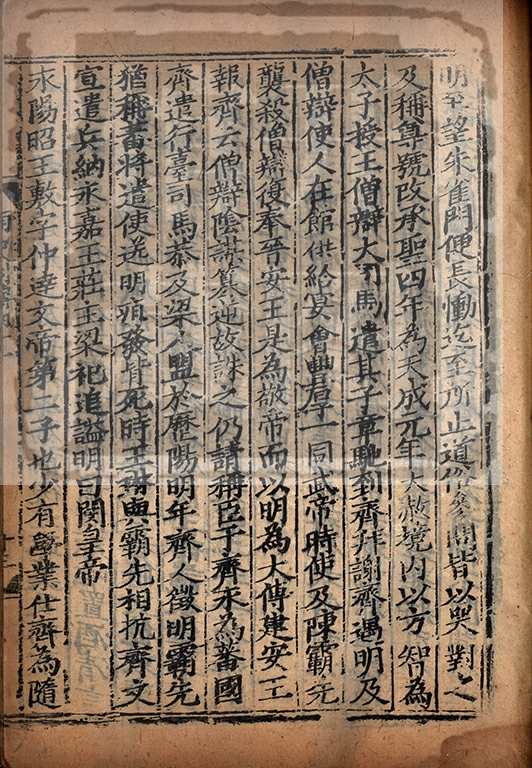 明至望朱雀門便長慟迄至所止道俗參問皆以哭對之
及稱尊號改承聖四年為天成元年大赦境內以方智為
太子授王僧辯大司馬遣其子章馳到齊拜謝齊遇明及
僧辯使人在館供給宴會豐厚一同武帝時使及陳霸先
襲殺僧辯復奉晉安王是為敬帝而以明為大傅建安王
報齊云僧辯陰謀篡逆故誅之仍請稱臣于齊永為蕃國
齊遣行臺司馬恭及梁人盟於歷陽明年齊人徵明霸先
猶稱蕃將遣使送明疽發背死時王琳與霸先相抗齊文
宣遣兵納永嘉王莊主梁祀追謚明曰閔皇帝
永陽昭王敷字仲達文帝第二子也少有學業仕齊為隨